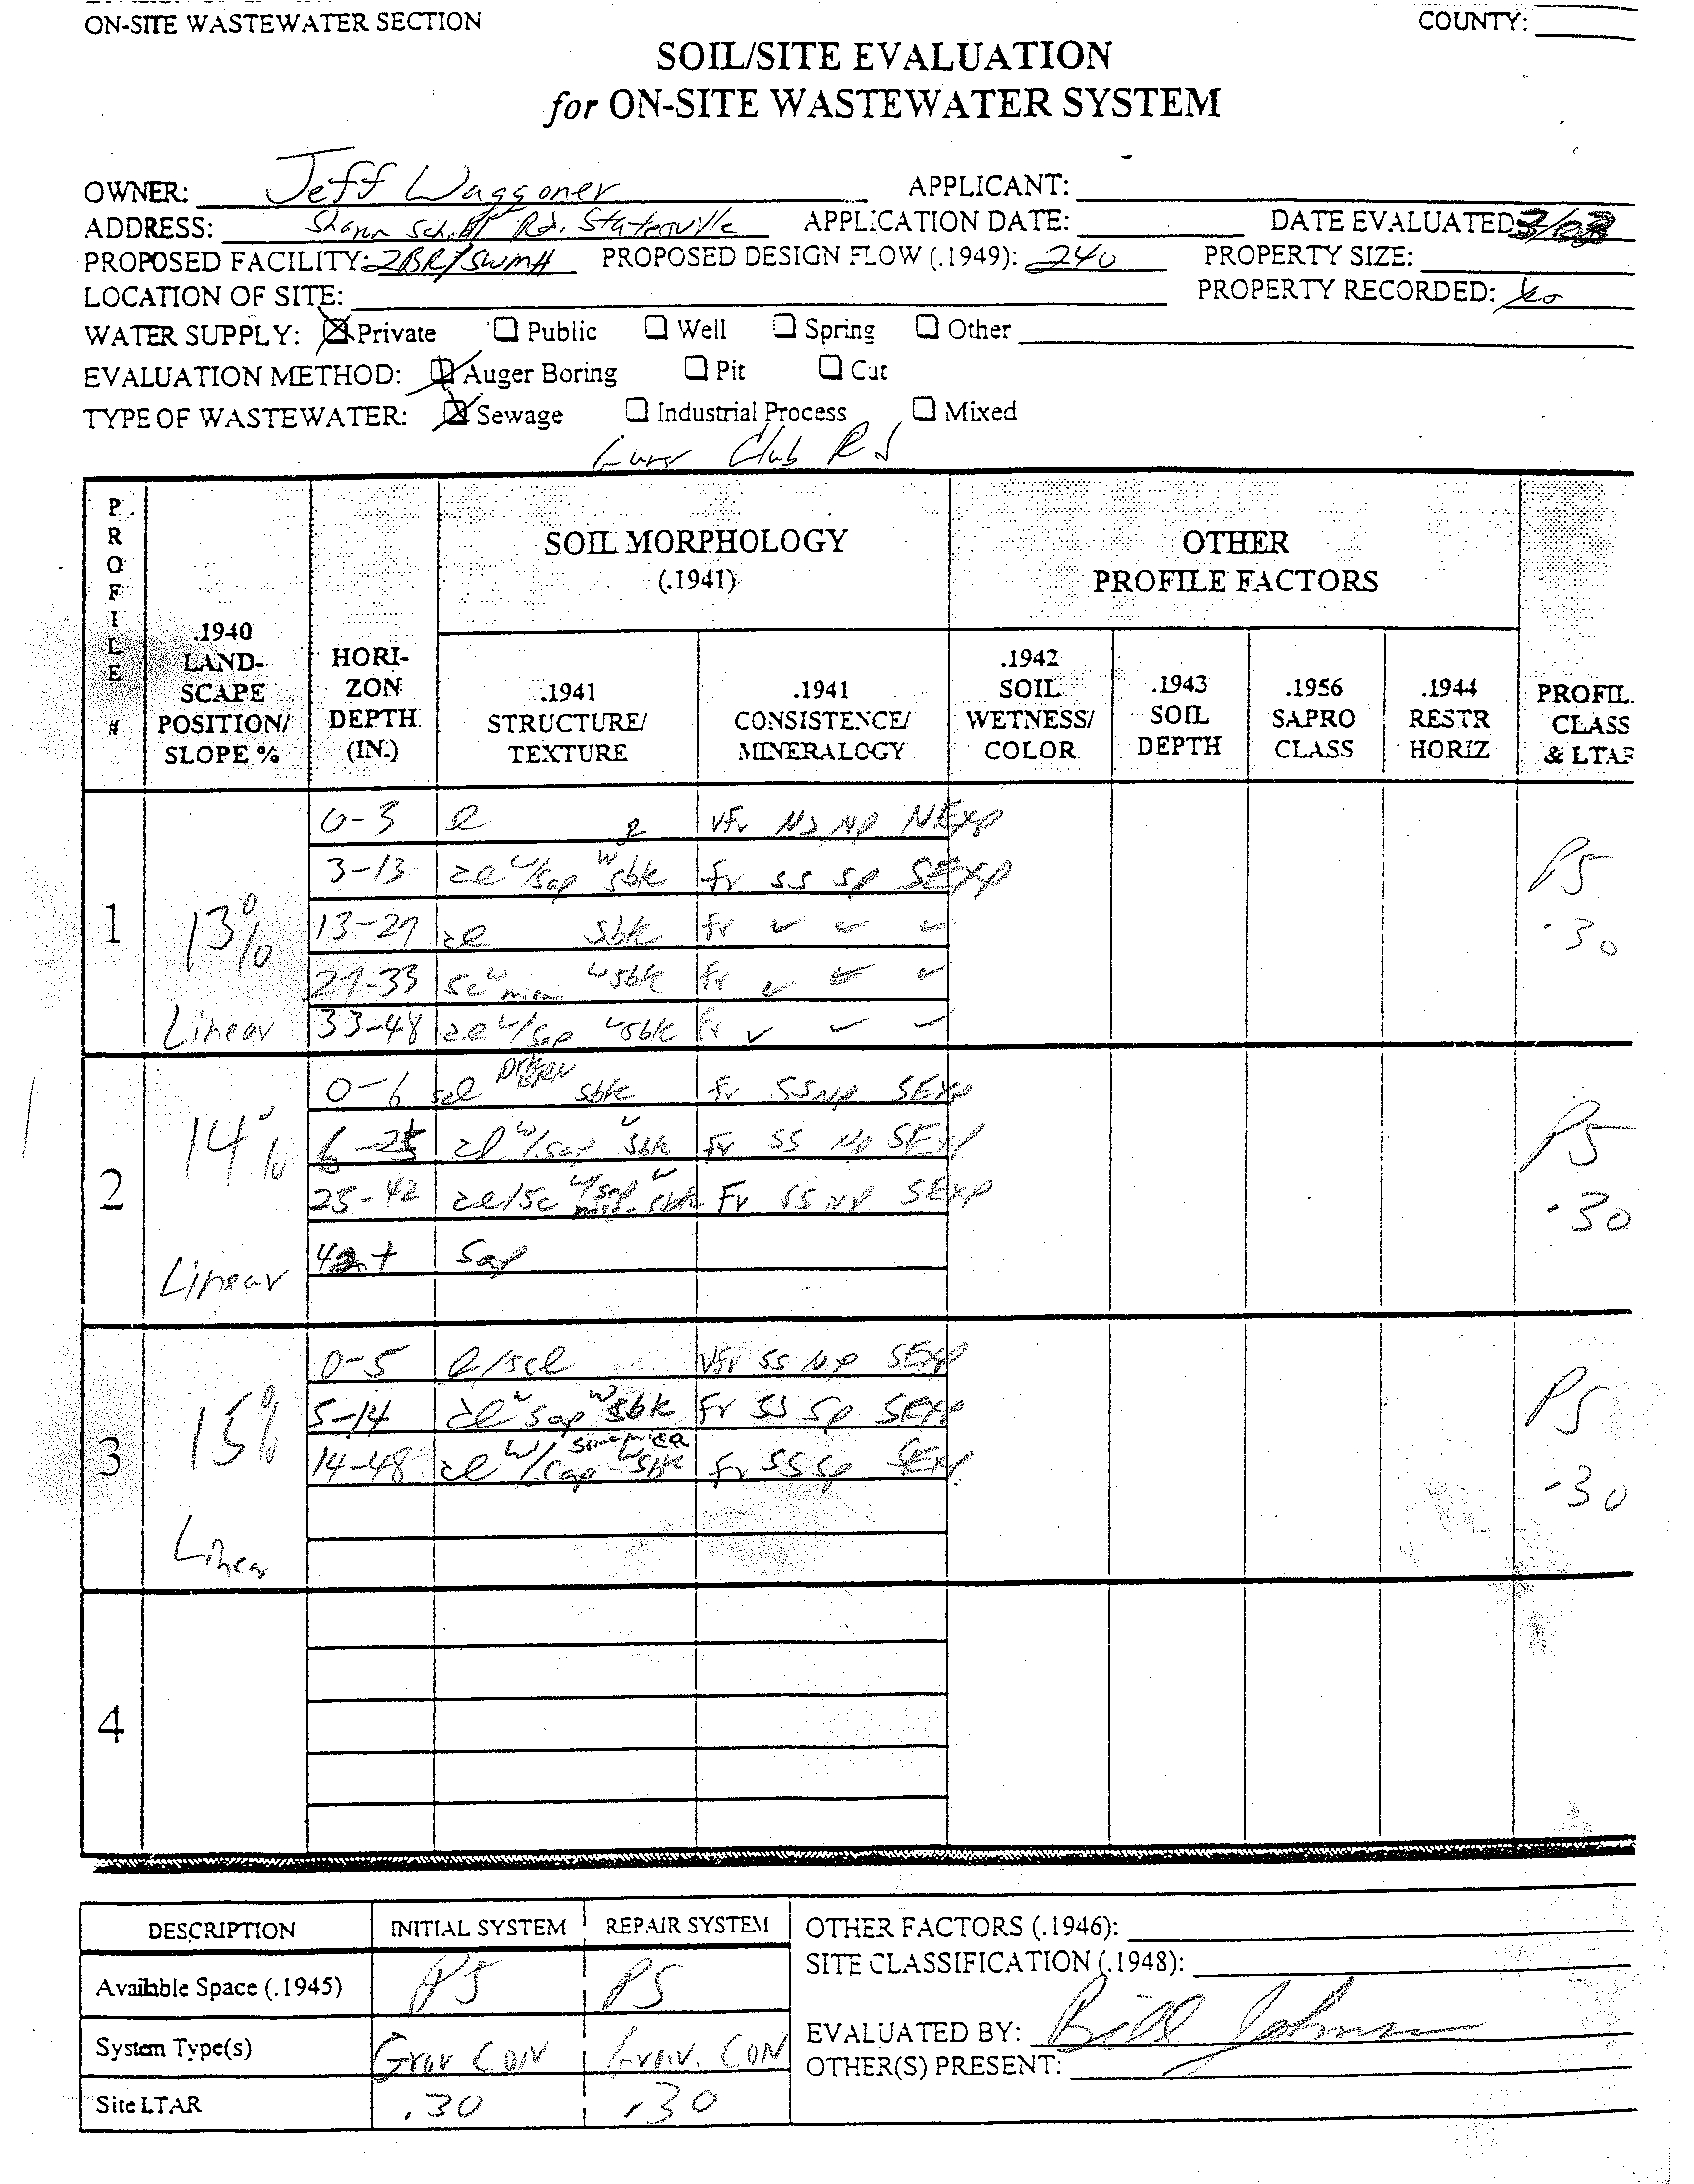 ON-SITE WASTEWATER SECTION
COUNTY:
SOIL/SITE EVALUATION
for ON-SITE WASTEWATER SYSTEM
OWNER: Jeff Waggoner APPLICANT:
ADDRESS: Rd. Statesville APPLICATION DATE: DATE EVALUATED:
PROPOSED FACILITY: 2BR/SWMH PROPOSED DESIGN FLOW (.1949): 240 PROPERTY SIZE:
LOCATION OF SITE: PROPERTY RECORDED:
WATER SUPPLY: Private Public Well Spring Other
EVALUATION METHOD: Auger Boring Pit Cut
TYPE OF WASTEWATER: Sewage Industrial Process Mixed
Club Rd
PROFILE #
.1940 LAND-SCAPE POSITION/ SLOPE %
HORI-ZON DEPTH (IN.)
SOIL MORPHOLOGY (.1941)
OTHER PROFILE FACTORS
.1941 STRUCTURE/ TEXTURE
.1941 CONSISTENCE/ MINERALOGY
.1942 SOIL WETNESS/ COLOR
.1943 SOIL DEPTH
.1956 SAPRO CLASS
.1944 RESTR HORIZ
PROFIL. CLASS & LTAR
1 13% Linear PS .30
0-3 l g vfr NS NP NEXP
3-13 cl w/sap w sbk fr SS SP SEXP
13-27 cl sbk fr ✓ ✓ ✓
27-33 w sbk fr ✓ ✓ ✓
33-48 cl w/sap w sbk fr ✓ ✓ ✓
2 14% Linear PS .30
0-6 scl sbk fr SS NP SEXP
6-25 cl w/sap w sbk fr SS NP SEXP
25-42 cl/sc w/sap sbk Fr SS NP SEXP
42+ Sap
3 15% Linear PS .30
0-5 l/scl vfr SS NP SEXP
5-14 cl w sap w sbk Fr SS SP SEXP
14-48 cl w/sap mica w sbk fr SS SP SEXP
4
DESCRIPTION INITIAL SYSTEM REPAIR SYSTEM
Available Space (.1945) PS PS
System Type(s) Grav CON Grav. CON
Site LTAR .30 .30
OTHER FACTORS (.1946):
SITE CLASSIFICATION (.1948):
EVALUATED BY: Bill Johnson
OTHER(S) PRESENT: